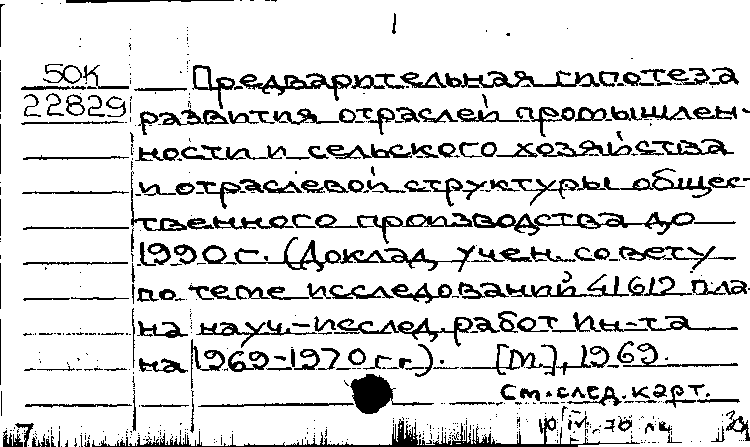 1
50К
22829
Предварительная гипотеза
развития отраслей промышлен-
ности и сельского хозяйства
и отраслевой структуры общес-
твенного производства до
1990 г. (Доклад учен. совету
по теме исследований 41612 пла-
на науч.-исслед. работ Ин-та
на 1969-1970 г.г.). [М.], 1969.
См. след. карт.
7
10 IV-70